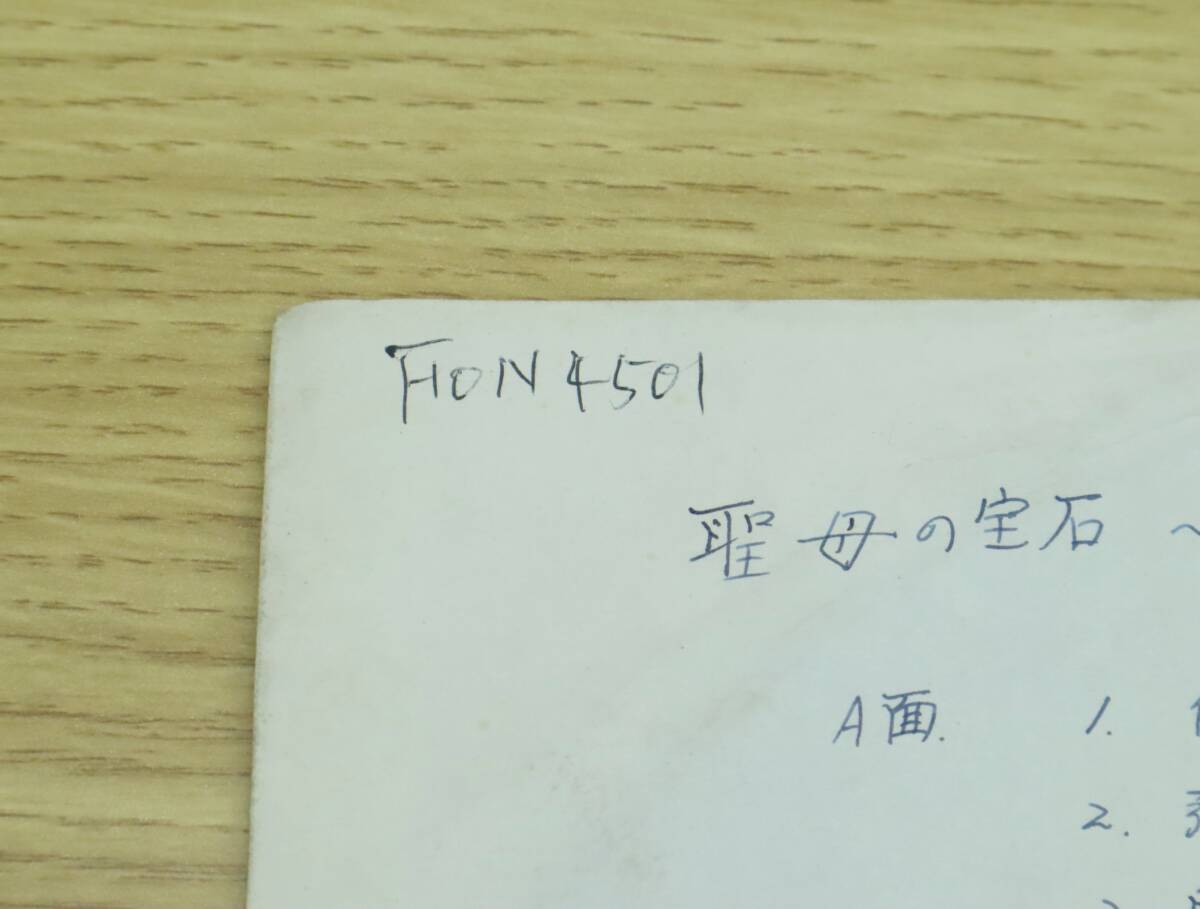 FION4501
聖母の宝石 〜
A面. 1.
2.